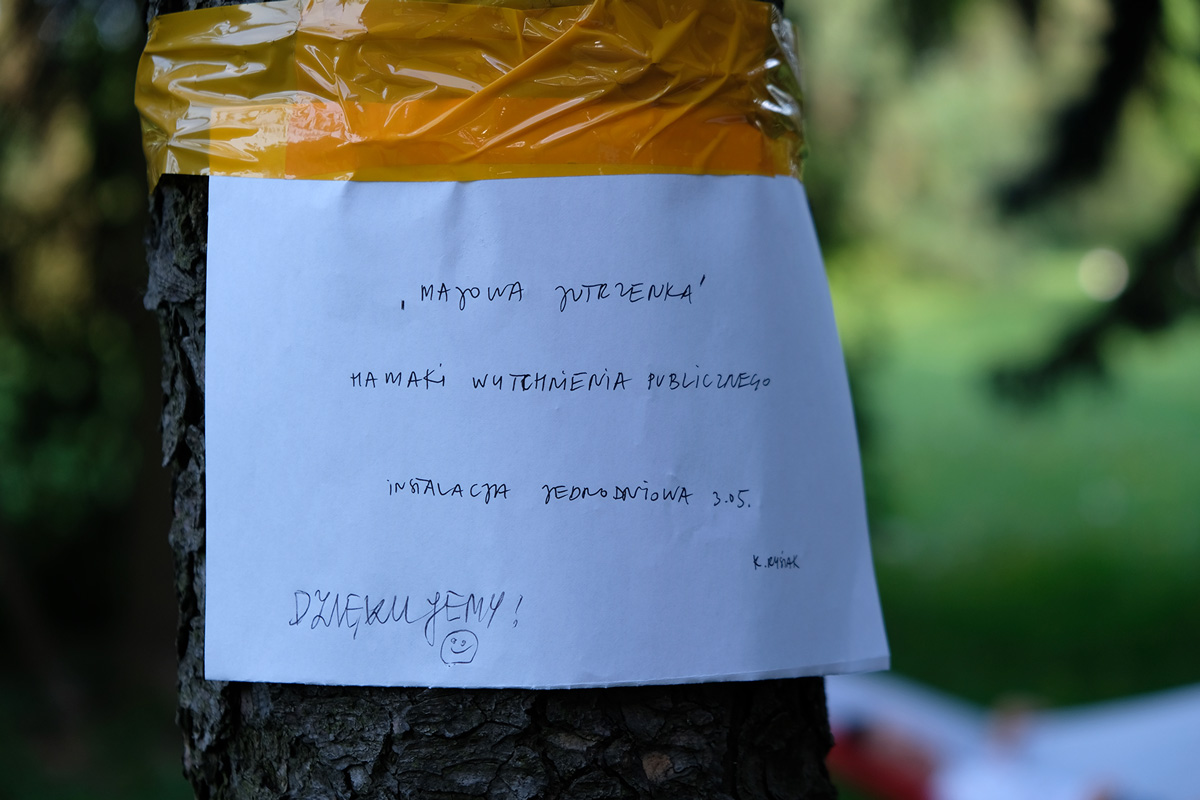 ‚MAJOWA JUTRZENKA’
HAMAKI WYTCHNIENIA PUBLICZNEGO
INSTALACJA JEDNODNIOWA 3.05.
K. RYSIAK
DZIĘKUJEMY!